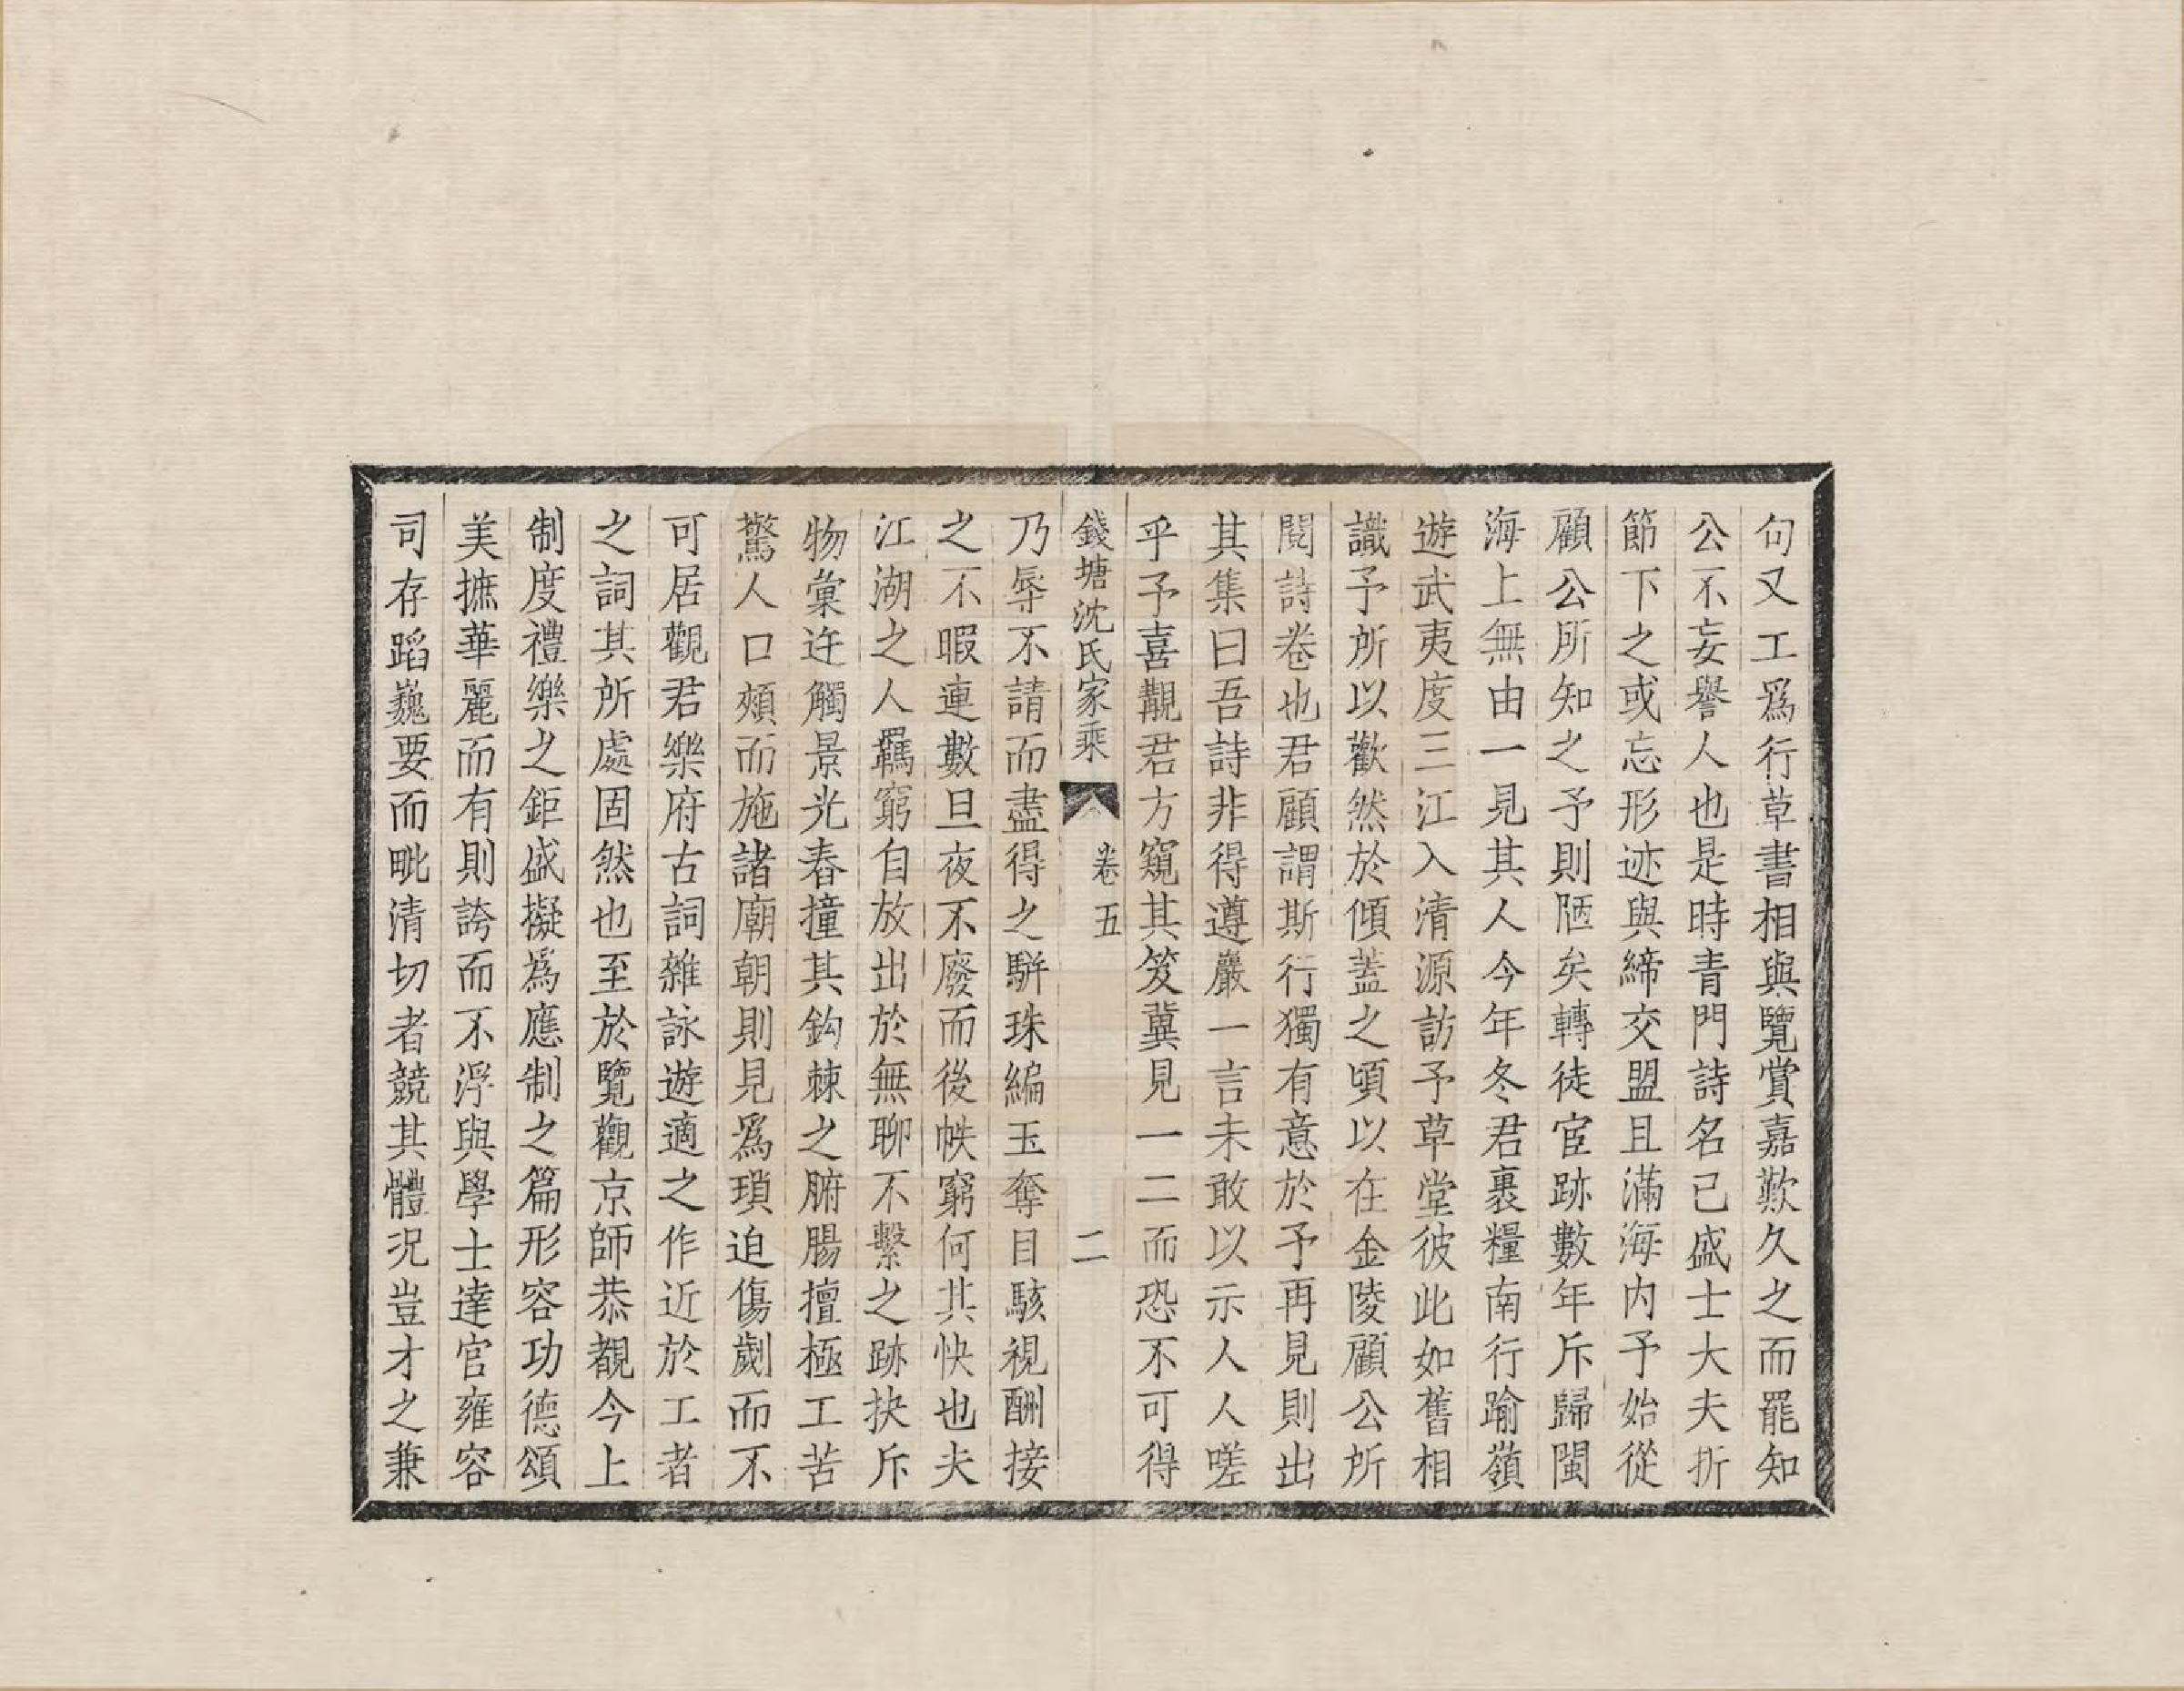 句又工爲行草書相與覽賞嘉歎久之而罷知
公不妄譽人也是時青門詩名已盛士大夫折
節下之或忘形迹與締交盟且滿海内予始從
顧公所知之予則陋矣轉徒宦跡數年斥歸閩
海上無由一見其人今年冬君裹糧南行踰嶺
遊武夷度三江入清源訪予草堂彼此如舊相
識予所以歡然於傾蓋之頃以在金陵顧公所
閱詩卷也君顧謂斯行獨有意於予再見則出
其集曰吾詩非得遵巖一言未敢以示人人嗟
乎予喜觀君方窺其笈冀見一二而恐不可得
錢塘沈氏家乘 卷五 二
乃辱不請而盡得之駢珠編玉奪目駭視酬接
之不暇連數旦夜不廢而後帙窮何其快也夫
江湖之人羈窮自放出於無聊不繫之跡抉斥
物彙迕觸景光舂撞其鈎棘之腑腸擅極工苦
驚人口頰而施諸廟朝則見爲瑣迫傷劌而不
可居觀君樂府古詞雜詠遊適之作近於工者
之詞其所處固然也至於覽觀京師恭覩今上
制度禮樂之鉅盛擬爲應制之篇形容功德頌
美摭華麗而有則誇而不浮與學士達官雍容
司存蹈巍要而毗清切者競其體況豈才之兼